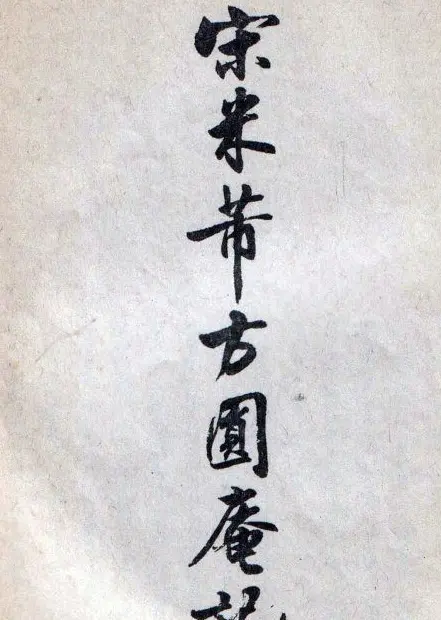 宋米芾方圓庵記